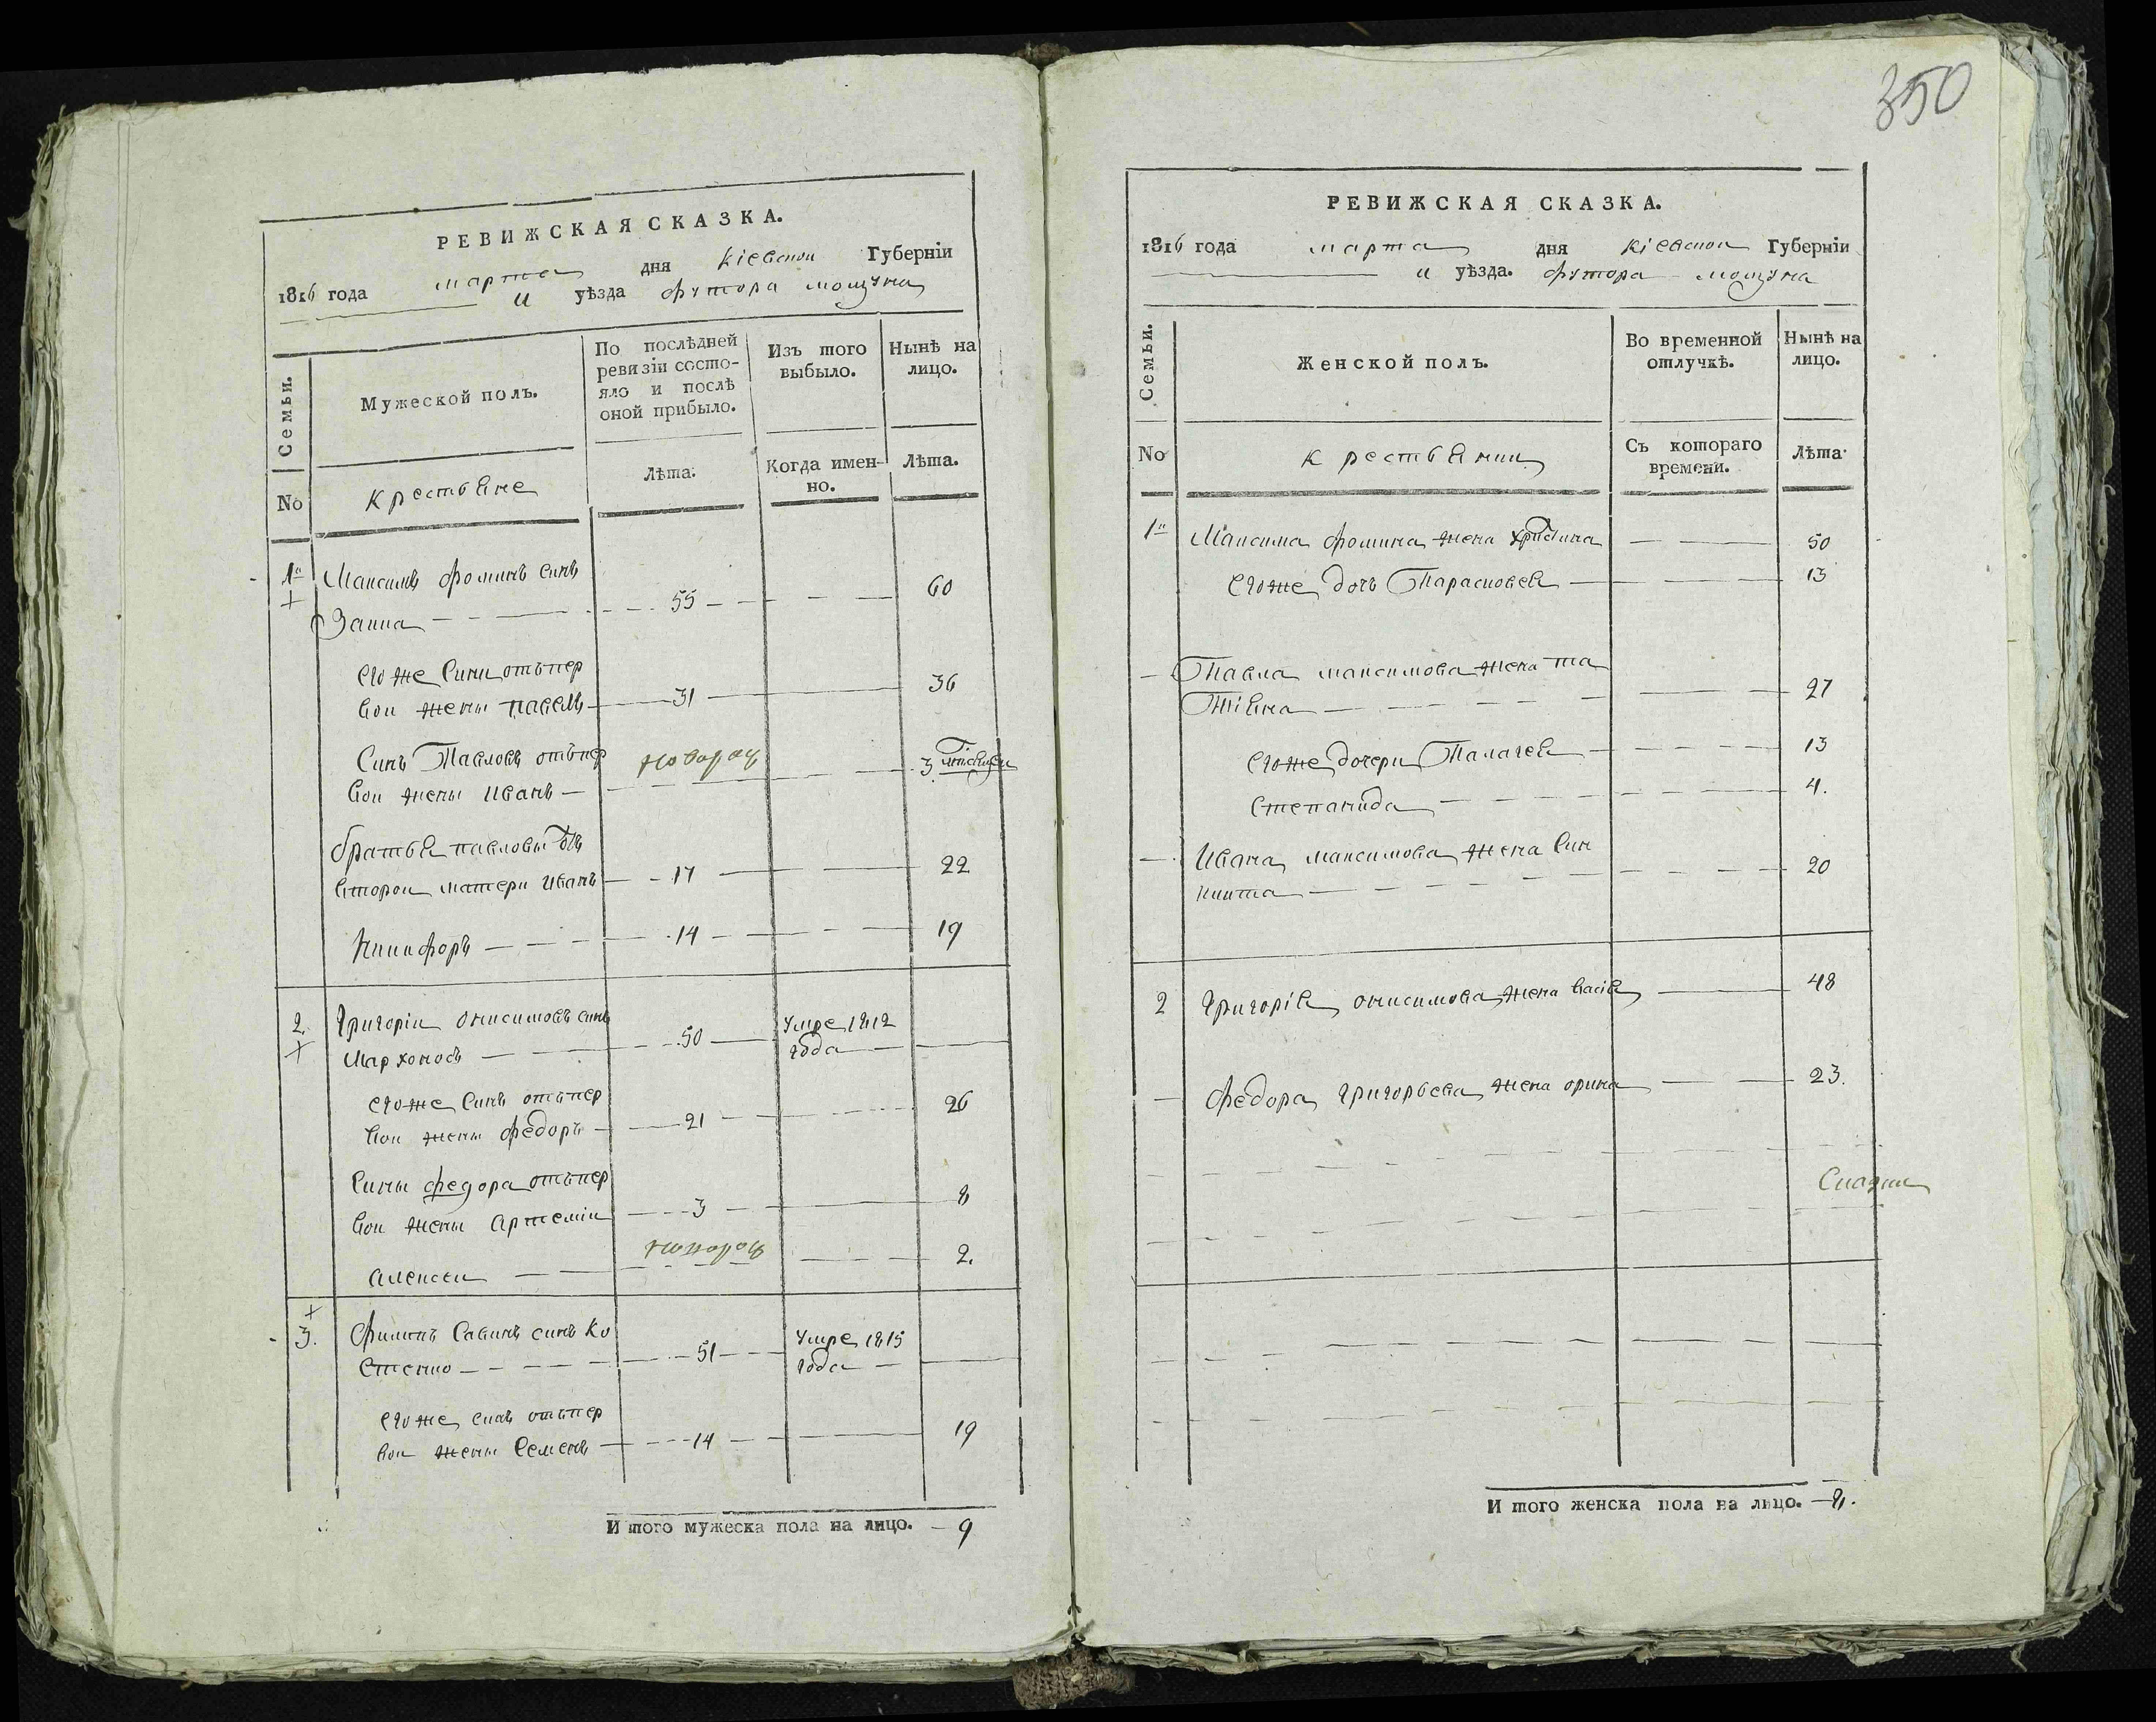 350
РЕВИЖСКАЯ СКАЗКА.
1816 года марта дня Кіевской Губерніи
и уѣзда футора мощуна
Семьи.
Мужеской полъ.
По послѣдней
ревизіи состо-
яло и послѣ
оной прибыло.
Изъ того
выбыло.
Нынѣ на
лицо.
No
крестьяне
Лѣта.
Когда имен-
но.
Лѣта.
1й Максимъ фоминъ синъ
Заика 55 60
его же сини отъ пер
вои жены павелъ 31 36
Синъ Павловъ отъ пер новорож
вои жены иванъ 3
братья павловы отъ
второи матери иванъ 17 22
Никифоръ 14 19
2. Григорiи онисимовъ синъ умре 1812
Мархоносъ 50 года
его же синъ отъ пер
вои жены федоръ 21 26
сины федора отъ пер
вои жены артемiи 3 8
алексеи 2.
3. Филипъ савинъ синъ ко умре 1815
стенко 51 года
его же синъ отъ пер
вои жены семенъ 14 19
И того мужеска пола на лицо. 9
РЕВИЖСКАЯ СКАЗКА.
1816 года марта дня Кіевской Губерніи
и уѣзда. футора мощуна
Семьи.
Женской полъ.
Во временной
отлучкѣ.
Нынѣ на
лицо.
No
крестьянки
Съ котораго
времени.
Лѣта.
1й Максима фомина жена христина 50
его же дочь Парасковея 13
Павла максимова жена та
тiяна 27
его же дочери Палагея 13
степанида 4.
Ивана максимова жена син
кликта 20
2 Григорiя онисимова жена васiя 48
федора григорьева жена орина 23.
И того женска пола на лицо. 8.